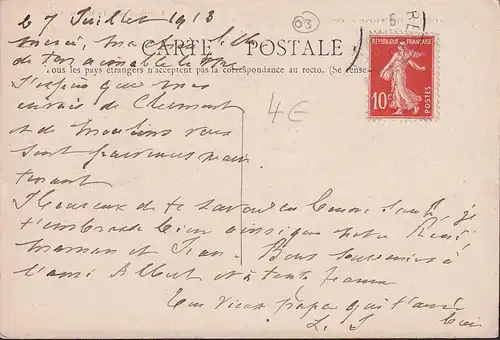 Le 7 Juillet 1913
03
RE
Merci, ma
CARTE POSTALE
de ton aimable lettre
Tous les pays étrangers n'acceptent pas la correspondance au recto. (Se rense
RÉPUBLIQUE FRANÇAISE
10c
POSTES
4€
J'espère que mes
envois de Clermont
et de Moulins vous
sont parvenus main
tenant
Heureux de te savoir en bonne santé, je
t'embrasse bien ainsi que notre René
maman et Jean. Bons souvenirs à
l'ami Albert et à toute
Ton vieux papa qui t'aime
bien
L. J